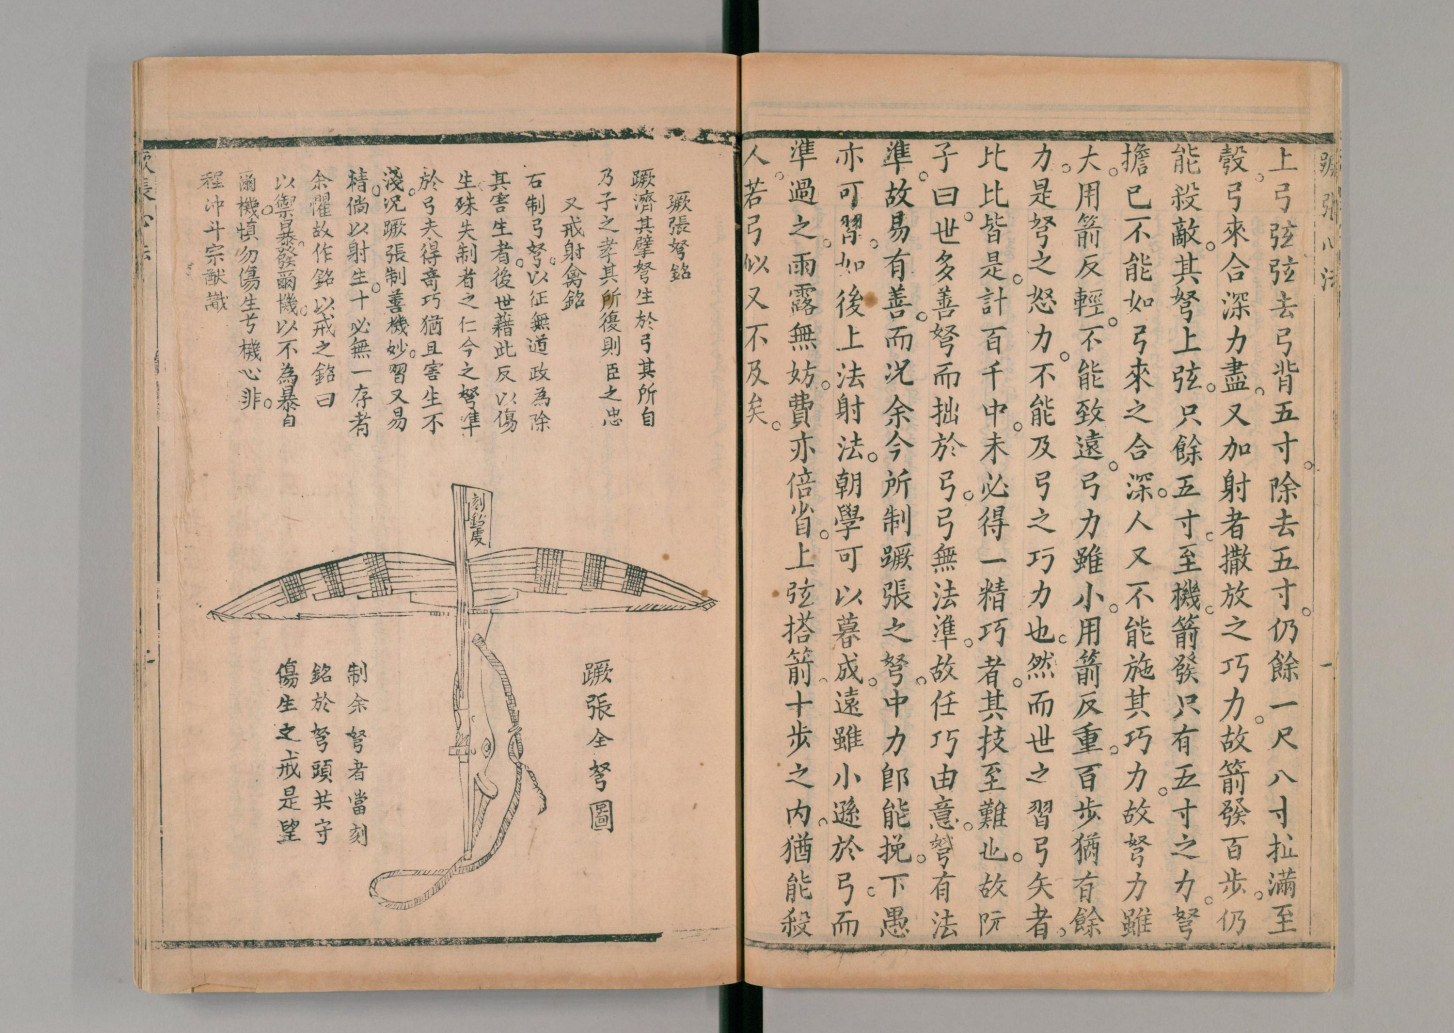 蹶張心法
一
上弓弦弦去弓背五寸除去五寸仍餘一尺八寸拉滿至
彀弓來合深力盡又加射者撒放之巧力故箭發百步仍
能殺敵其弩上弦只餘五寸至機箭發只有五寸之力弩
擔已不能如弓來之合深人又不能施其巧力故弩力雖
大用箭反輕不能致遠弓力雖小用箭反重百步猶有餘
力是弩之怒力不能及弓之巧力也然而世之習弓矢者
比比皆是計百千中未必得一精巧者其技至難也故阮
子曰世多善弩而拙於弓弓無法準故任巧由意弩有法
準故易有善而况余今所制蹶張之弩中力郎能挽下愚
亦可習如後上法射法朝學可以暮成遠雖小遜於弓而
準過之雨露無妨費亦倍省上弦搭箭十步之内猶能殺
人若弓似又不及矣
蹶張弩銘
蹶濟其擘弩生於弓其所自
乃子之孝其所復則臣之忠
又戒射禽銘
石制弓弩以征無道政為除
其害生者後世藉此反以傷
生殊失制者之仁今之弩準
於弓夫得竒巧猶且害生不
淺况蹶張制善機妙習又易
精倘以射生十必無一存者
余懼故作銘以戒之銘曰
以禦暴發爾機以不為暴自
爾機慎勿傷生亏機心非
程沖斗宗猷識
刻銘處
蹶張全弩圖
制余弩者當刻
銘於弩頭共守
傷生之戒是望
蹶張心法